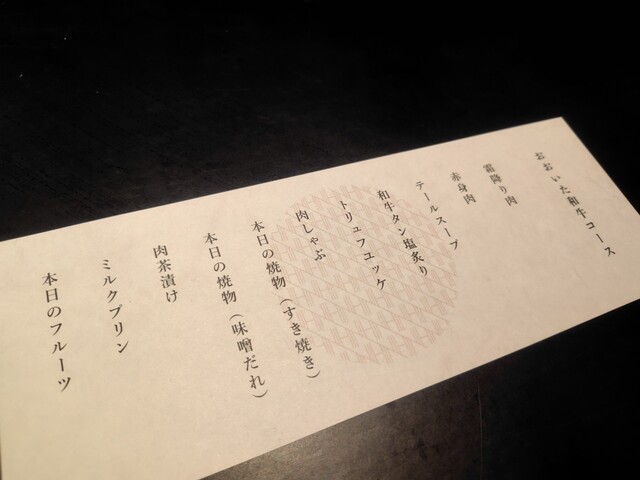 おおいた和牛コース
霜降り肉
赤身肉
テールスープ
和牛タン塩炙り
トリュフユッケ
肉しゃぶ
本日の焼物（すき焼き）
本日の焼物（味噌だれ）
肉茶漬け
ミルクプリン
本日のフルーツ